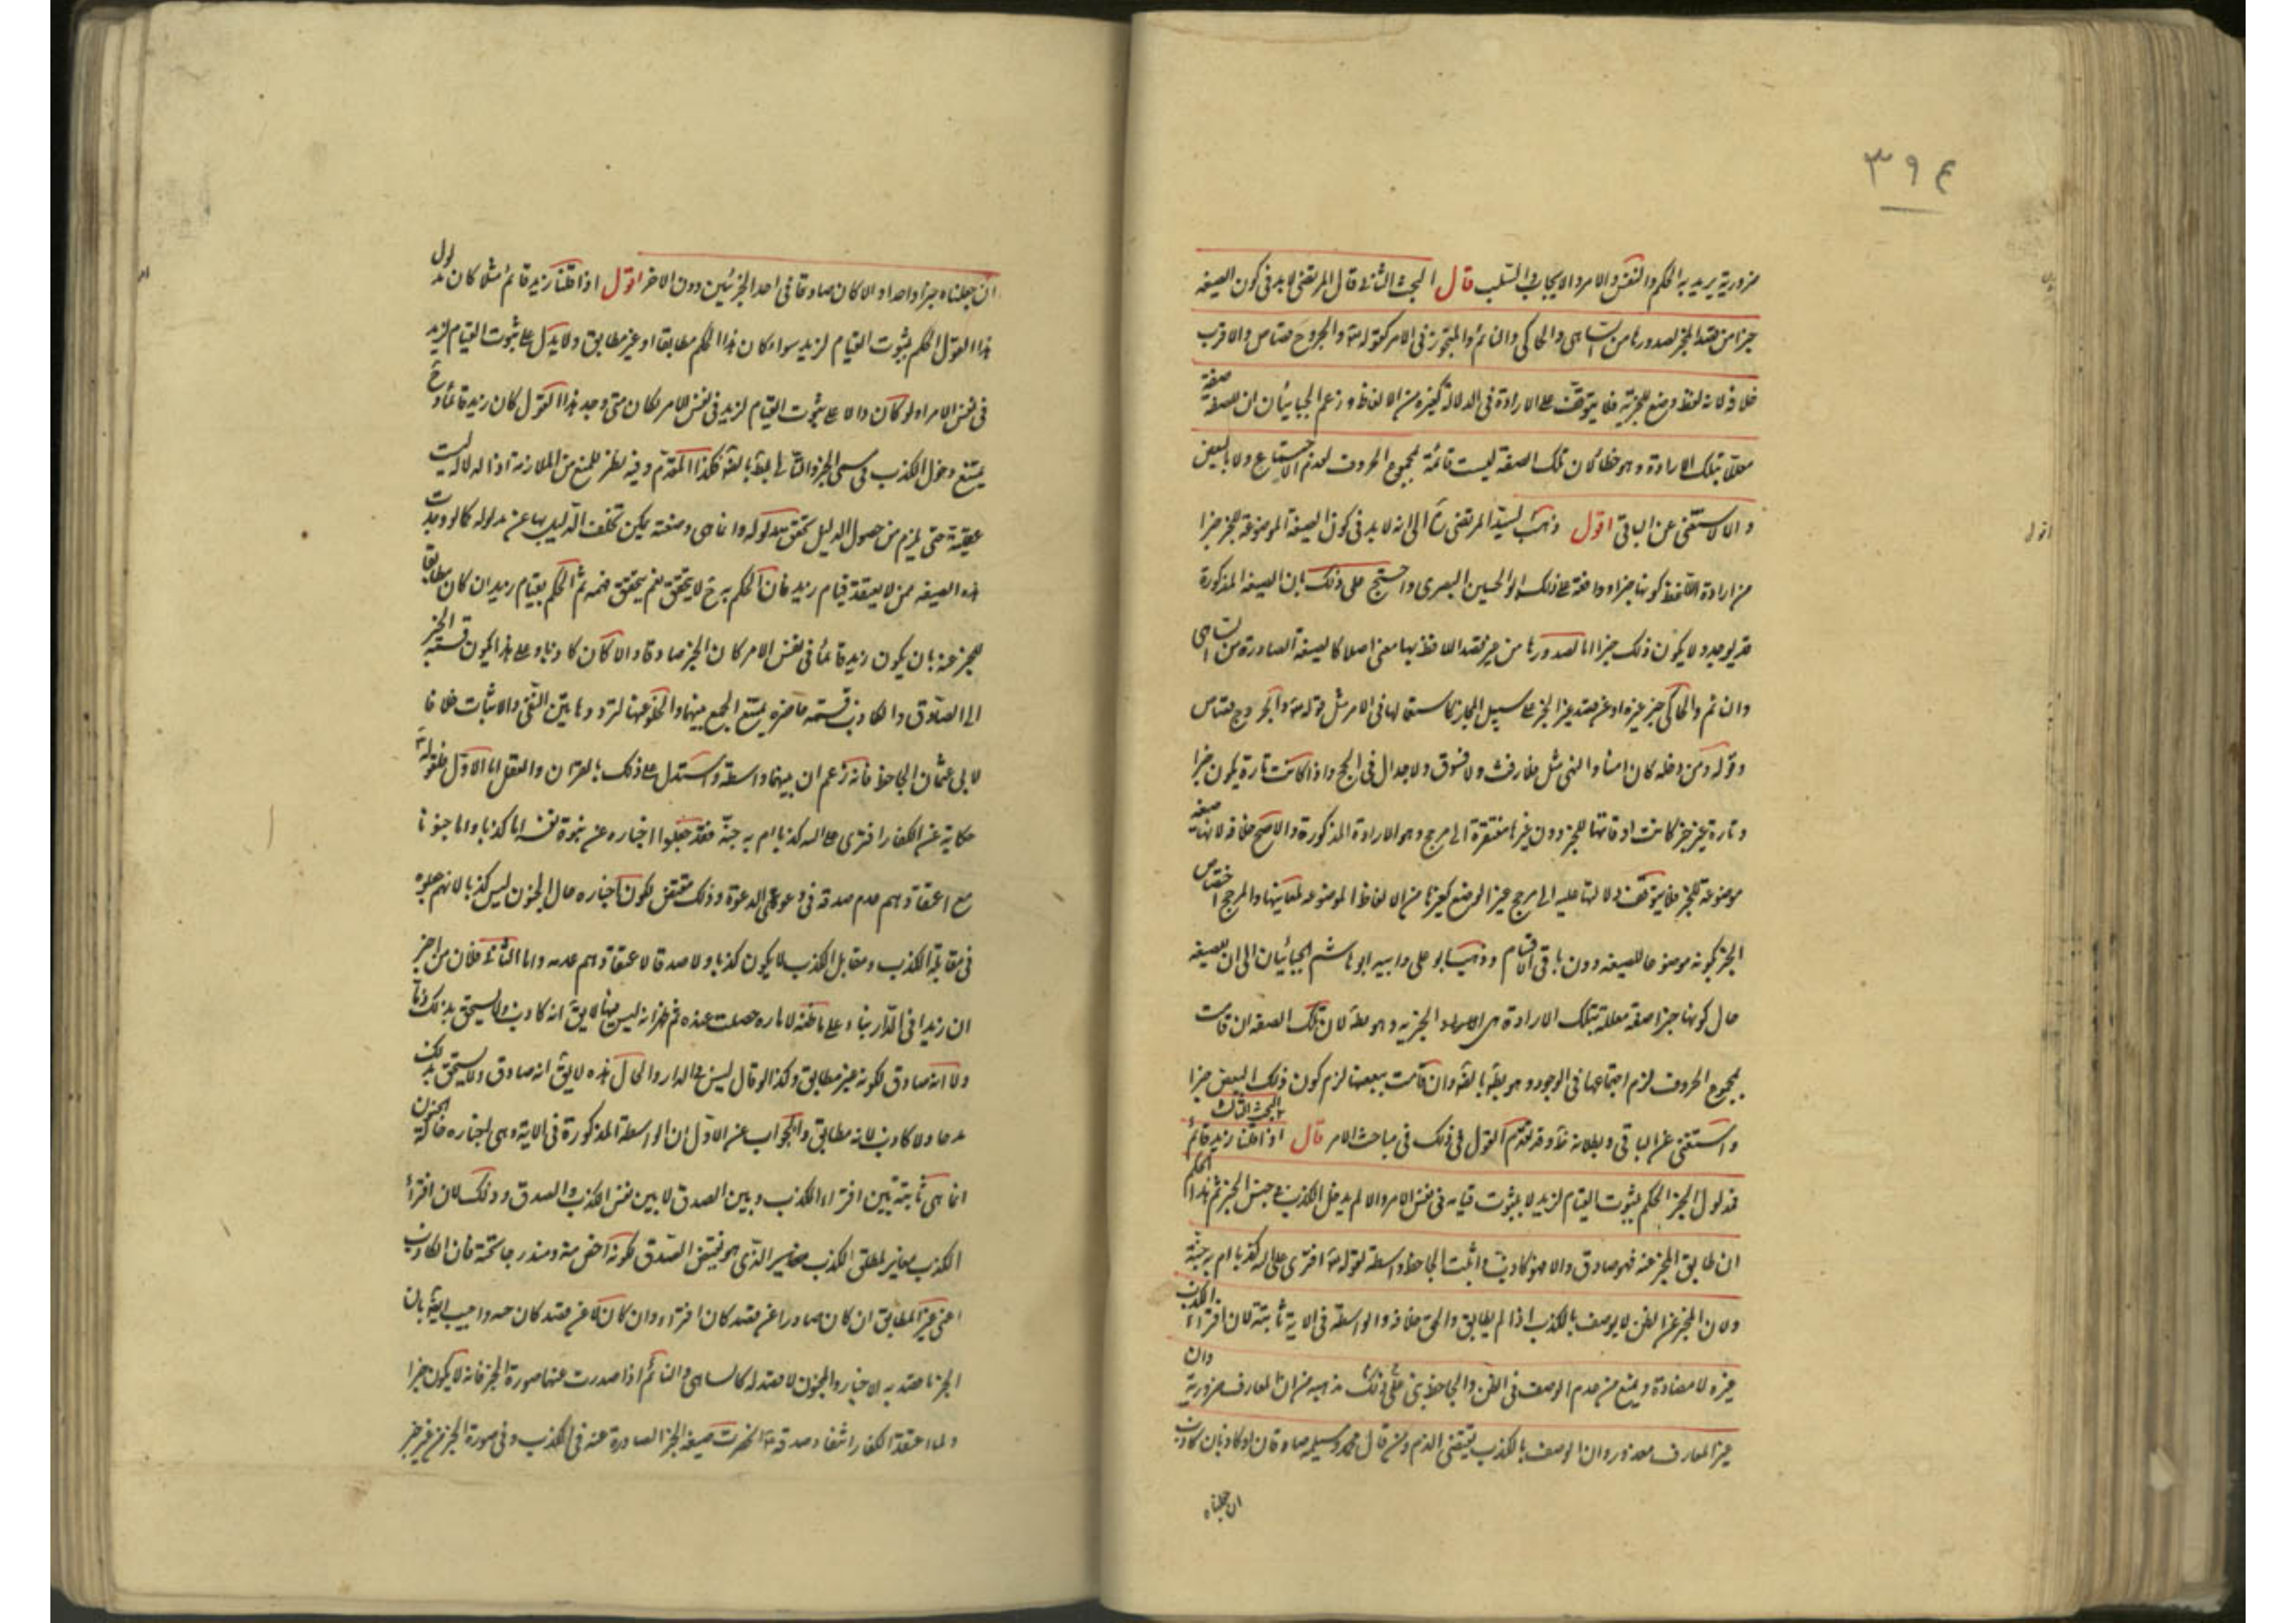 ٣٩٤
ضرورية يريد به الحكم والنفس والامر والايجاب والسلب قال البحث الثانى قال المرتضى لابد فى كون الصيغة
خبرا من قصد المخبر لصدورها من الساهى والحاكى والنائم والتجوز فى الامر كقوله تعالى والجروح قصاص والاقرب
خلافه لانه لفظ وضع للخبرية فلا يتوقف على الارادة فى الدلالة كغيره من الالفاظ وزعم الجبائيان ان للصيغة صفة
معللة بتلك الارادة وهو خطأ لان تلك الصفة ليست قائمة بمجموع الحروف لعدم الاجتماع ولا بالبعض
والا لاستغنى عن الباقى اقول ذهب السيد المرتضى الى انه لابد فى كون الصيغة الموضوعة للخبر خبرا
من ارادة اللافظ كونها خبرا ووافقه على ذلك ابو الحسين البصرى واحتج على ذلك بان الصيغة المذكورة
قد يوجد ولا يكون ذلك خبرا اما لصدورها من غير قصد اللافظ بها معنى اصلا كالصيغة الصادرة من الساهى
والنائم والحاكى خبر غيره او عن قصد غير الخبر على سبيل المجاز كاستعمالها فى الامر مثل قوله تعالى والجروح قصاص
وقوله ومن دخله كان امنا والنهى مثل فلا رفث ولا فسوق ولا جدال فى الحج واذا كانت تارة يكون خبرا
وتارة غير خبر كانت اوقاتها للخبر دون غيرها مفتقرة الى مرجح وهو الارادة المذكورة والاصح خلافه لانها صيغة
موضوعة للخبر فلا يتوقف دلالتها عليه الى مرجح غير الوضع كغيرها من الالفاظ الموضوعة لمعانيها والمرجح اختصاص
الخبر بكونه موضوعا للصيغة دون باقى الاقسام وذهب ابو على وابنه ابو هاشم الجبائيان الى ان للصيغة
حال كونها خبرا صفة معللة بتلك الارادة هى الخبرية وهو بط لان تلك الصفة ان قامت
بمجموع الحروف لزم اجتماعها فى الوجود وهو بط بالضرورة وان قامت ببعضها لزم كون ذلك البعض خبرا
واستغنى عن الباقى وبطلانه ظ وقد تقدم القول فى ذلك فى مباحث الامر قال البحث الثالث اذا قلنا زيد قائم
فمدلول الخبر الحكم بثبوت القيام لزيد لا ثبوت قيامه فى نفس الامر والا لم يدخل الكذب فى جنس الخبر ثم هذا الحكم
ان طابق المخبر عنه فهو صادق والا فهو كاذب واثبت الجاحظ واسطة لقوله تعالى افترى على الله كذبا ام به جنة
ولان المخبر عن الظن لا يوصف بالكذب اذا لم يطابق والحق خلافه والواسطة فى الاية ثابتة لان افتراء الكذب
غيره لا مضادة ويمنع من عدم الوصف فى الظن والجاحظ بنى على ذلك مذهبه من ان المعارف ضرورية وان
غير العارف معذور وان الوصف بالكذب يقتضى الذم ومن قال محمد ومسيلمة صادقان او كاذبان كاذب
ان جعلناه
ان جعلناه خبرا واحدا والا كان صادقا فى احد الخبرين دون الاخر اقول اذا قلنا زيد قائم مثلا كان مدلول
هذا القول الحكم بثبوت القيام لزيد سواء كان هذا الحكم مطابقا او غير مطابق ولا يدل على ثبوت القيام لزيد
فى نفس الامر اذ لو كان دالا على ثبوت القيام لزيد فى نفس الامر لكان متى وجد هذا القول كان زيد قائما وح
يمتنع دخول الكذب فى مسمى الخبر والتالى بط بالضرورة فكذا المقدم وفيه نظر للمنع من الملازمة اذ الدلالة ليست
عقلية حتى يلزم من حصول الدليل تحقق مدلوله وانما هى وضعية يمكن تخلف الدليل بها عن مدلوله كما لو وجدت
هذه الصيغة ممن لا يعتقد قيام زيد فان الحكم به ح لا يتحقق نعم يتحقق فهمه ثم الحكم بقيام زيد ان كان مطابقا
للمخبر عنه بان يكون زيد قائما فى نفس الامر كان الخبر صادقا والا كان كاذبا وعلى هذا يكون قسمة الخبر
الى الصادق والكاذب قسمة حاضرة يمتنع الجمع بينهما والخلو عنهما لترددها بين النفى والاثبات خلافا
لابى عثمان الجاحظ فانه زعم ان بينهما واسطة واستدل على ذلك بالقران والعقل اما الاول فقوله تعالى
حكاية عن الكفار افترى على الله كذبا ام به جنة فقد جعلوا اخباره عن نبوة نفسه اما كذبا واما جنونا
مع اعتقادهم عدم صدقه فى دعوى الدعوة وذلك يقتضى كون اخباره حال الجنون ليس كذبا لانهم جعلوه
فى مقابلة الكذب ومقابل الكذب لا يكون كذبا ولا صدقا لاعتقادهم عدمه واما الثانى فلان من اخبر
ان زيدا فى الدار بناء على ما ظنه لامارة حصلت عنده ثم ظهر انه ليس فيها لا يق انه كاذب ولا يستحق بذلك ذما
ولا انه صادق لكونه غير مطابق وكذا لو قال ليس فى الدار والحال هذه لا يق انه صادق ولا يستحق بذلك
مدحا ولا كاذب لانه مطابق والجواب عن الاول ان الواسطة المذكورة فى الاية وهى اخباره حالة الجنون
انما هى ثابتة بين افتراء الكذب وبين الصدق لا بين نفس الكذب والصدق وذلك لان افتراء
الكذب مغاير لمطلق الكذب مغاير الذى هو نقيض الصدق لكونه اخص منه ومندرجا تحته فان الكاذب
اعنى غير المطابق ان كان صادرا عن قصد كان افتراء وان كان لا عن قصد كان واجيب ايضا بان
الخبر ما قصد به الاخبار والمجنون لا قصد له كالساهى والنائم اذا صدرت عنهما صورة الخبر فانه لا يكون خبرا
ولما اعتقد الكفار انتفاء صدقه انحصرت صيغة الخبر الصادرة عنه فى الكذب وفى صورة الخبر من غير خبر